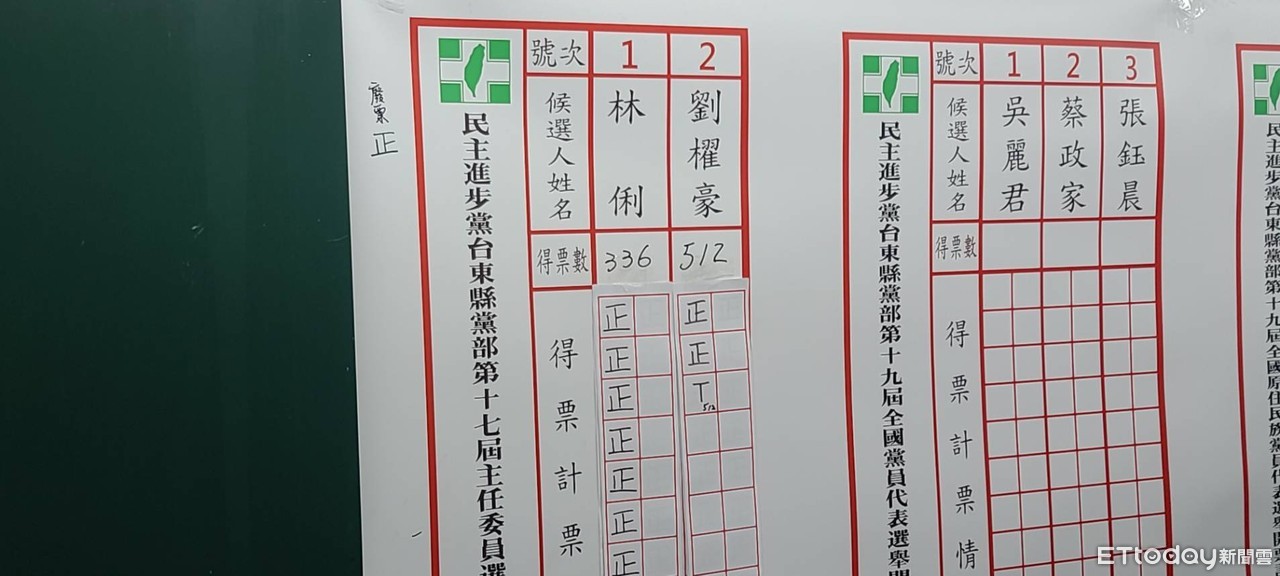 廢票
正
民主進步黨台東縣黨部第十七屆主任委員選
號次 1 2
候選人姓名 林俐 劉櫂豪
得票數 336 512
得票計票
正 正
正 正
正 T 512
正
正
正
正
民主進步黨台東縣黨部第十九屆全國黨員代表選舉開
號次 1 2 3
候選人姓名 吳麗君 蔡政家 張鈺晨
得票數
得票計票情
民主進步黨台東縣黨部第十九屆全國原住民族黨員代表選舉開
ETtoday新聞雲